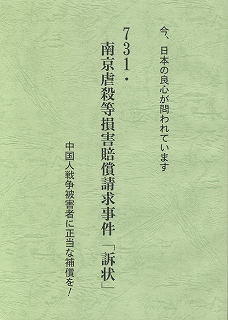 今、日本の良心が問われています
731・
南京虐殺等損害賠償請求事件「訴状」
中国人戦争被害者に正当な補償を！